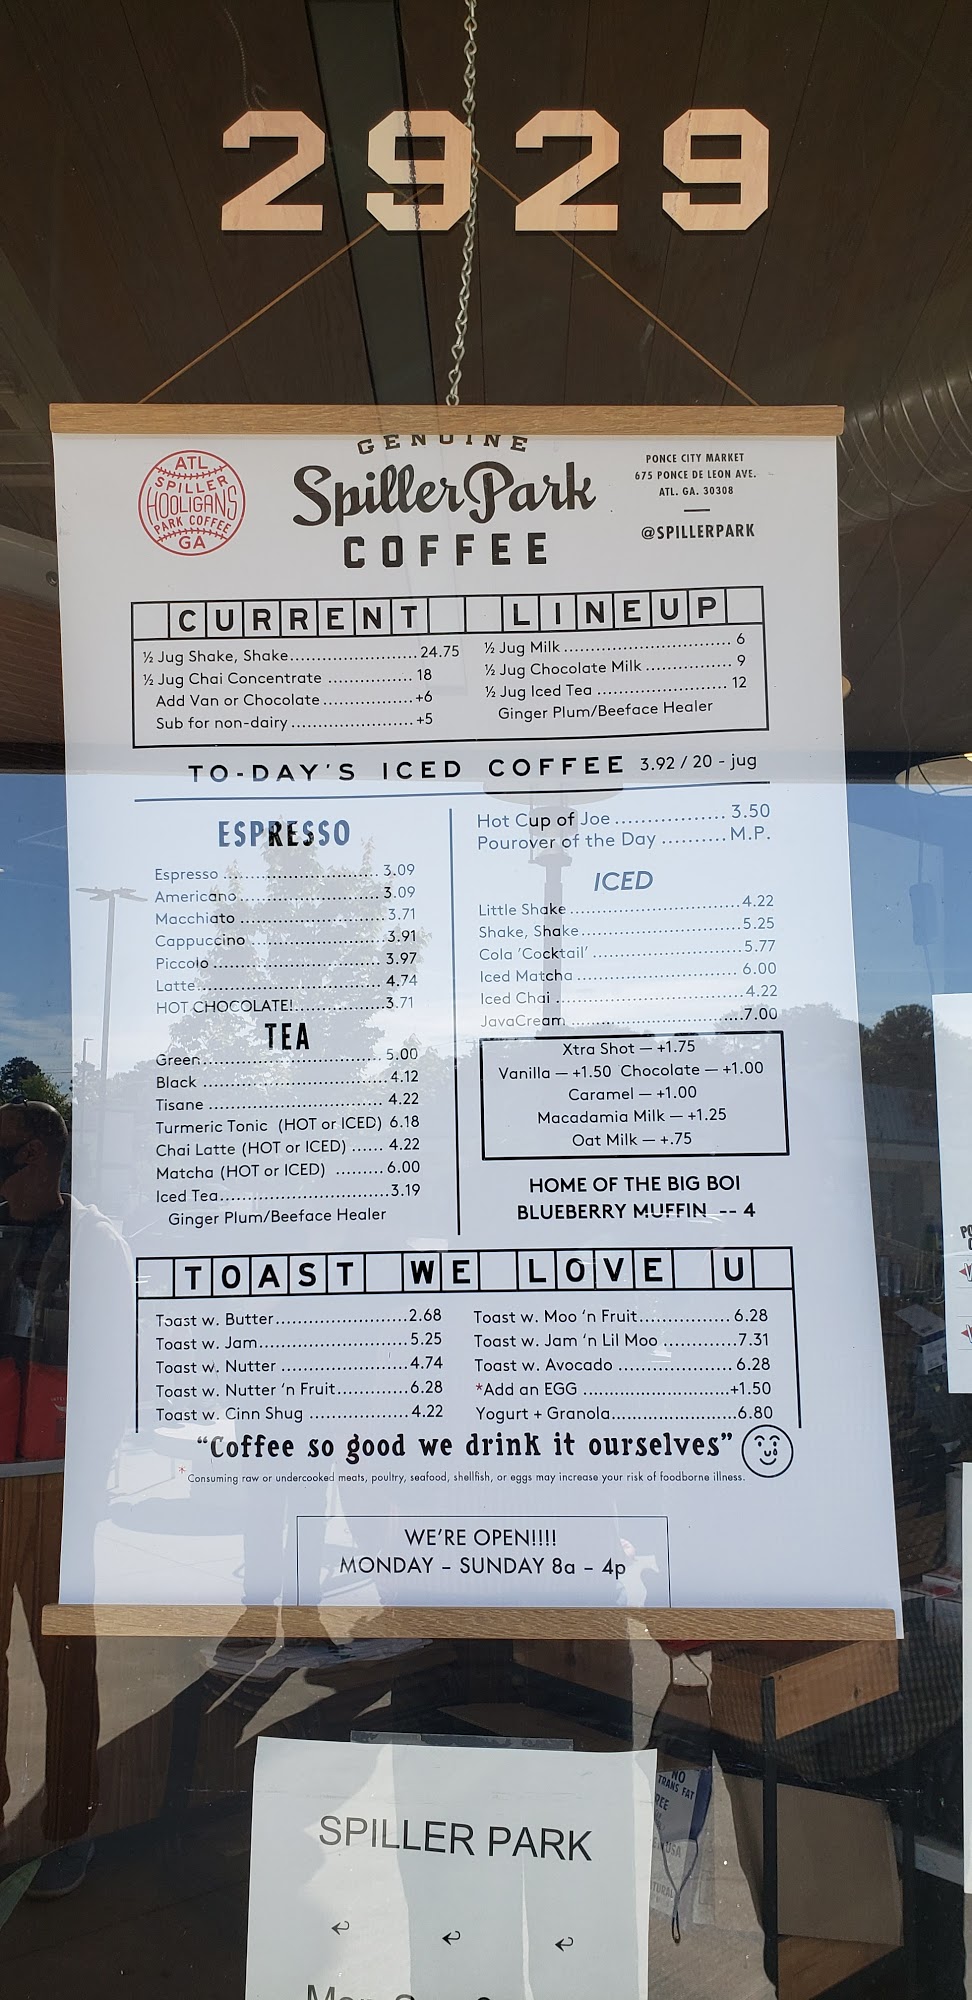 2929
GENUINE
Spiller Park
COFFEE
ATL
SPILLER
HOOLIGANS
PARK COFFEE
GA
PONCE CITY MARKET
675 PONCE DE LEON AVE.
ATL. GA. 30308
@SPILLERPARK
CURRENT LINEUP
½ Jug Shake, Shake....................24.75
½ Jug Chai Concentrate ................18
Add Van or Chocolate................+6
Sub for non-dairy......................+5
½ Jug Milk ............................6
½ Jug Chocolate Milk ................9
½ Jug Iced Tea .......................12
Ginger Plum/Beeface Healer
TO-DAY'S ICED COFFEE 3.92 / 20 - jug
ESPRESSO
Espresso ............................3.09
Americano..........................3.09
Macchiato ..........................3.71
Cappuccino ........................3.91
Piccolo ..............................3.97
Latte..................................4.74
HOT CHOCOLATE!..................3.71
TEA
Green................................5.00
Black ................................4.12
Tisane ...............................4.22
Turmeric Tonic (HOT or ICED) 6.18
Chai Latte (HOT or ICED) ......4.22
Matcha (HOT or ICED) .........6.00
Iced Tea.............................3.19
Ginger Plum/Beeface Healer
Hot Cup of Joe .................3.50
Pourover of the Day ..........M.P.
ICED
Little Shake..........................4.22
Shake, Shake........................5.25
Cola 'Cocktail' ......................5.77
Iced Matcha ........................6.00
Iced Chai ............................4.22
JavaCream ..........................7.00
Xtra Shot — +1.75
Vanilla — +1.50 Chocolate — +1.00
Caramel — +1.00
Macadamia Milk — +1.25
Oat Milk — +.75
HOME OF THE BIG BOI
BLUEBERRY MUFFIN -- 4
TOAST WE LOVE U
Toast w. Butter.......................2.68
Toast w. Jam..........................5.25
Toast w. Nutter ......................4.74
Toast w. Nutter 'n Fruit............6.28
Toast w. Cinn Shug .................4.22
Toast w. Moo 'n Fruit................6.28
Toast w. Jam 'n Lil Moo ............7.31
Toast w. Avocado ...................6.28
*Add an EGG ........................+1.50
Yogurt + Granola.....................6.80
"Coffee so good we drink it ourselves"
*Consuming raw or undercooked meats, poultry, seafood, shellfish, or eggs may increase your risk of foodborne illness.
WE'RE OPEN!!!!
MONDAY - SUNDAY 8a - 4p
SPILLER PARK
NO
TRANS FAT